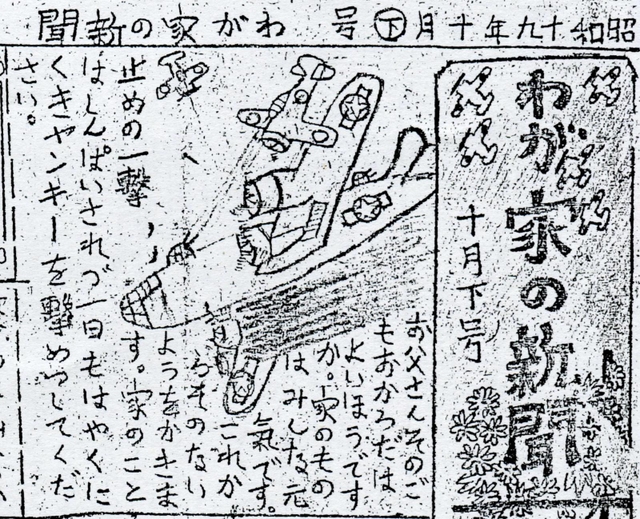 昭和十九年十月㊦号 わが家の新聞
わが家の新聞
十月下号
お父さんそのご
もおからだは
よいほうです
か。家のもの
はみんな元
気です。
これか
らそのない
ようをかきま
す。家のこと
はしんぱいされづ一日もはやくに
くきヤンキーを撃めつしてくだ
さい。
止めの一撃